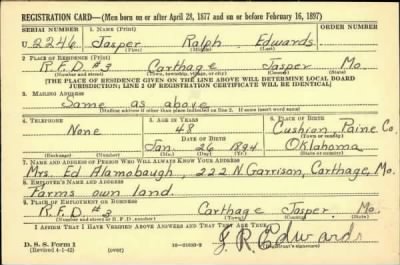 REGISTRATION CARD—(Men born on or after April 28, 1877 and on or before February 16, 1897)
SERIAL NUMBER 1. NAME (Print) ORDER NUMBER
U 2246 Jasper Ralph Edwards
(First) (Middle) (Last)
2. PLACE OF RESIDENCE (Print)
R.F.D. #3 Carthage Jasper Mo.
(Number and street) (Town, township, village, or city) (County) (State)
[THE PLACE OF RESIDENCE GIVEN ON THE LINE ABOVE WILL DETERMINE LOCAL BOARD
JURISDICTION; LINE 2 OF REGISTRATION CERTIFICATE WILL BE IDENTICAL]
3. MAILING ADDRESS
Same as above
(Mailing address if other than place indicated on line 2. If same insert word same)
4. TELEPHONE 5. AGE IN YEARS 6. PLACE OF BIRTH
None 48 Cushion, Paine Co.
DATE OF BIRTH (Town or county)
Jan. 26 1894 Oklahoma
(Exchange) (Number) (Mo.) (Day) (Yr.) (State or country)
7. NAME AND ADDRESS OF PERSON WHO WILL ALWAYS KNOW YOUR ADDRESS
Mrs. Ed Alamobaugh, 222 N Garrison, Carthage, Mo.
8. EMPLOYER'S NAME AND ADDRESS
Farms own land.
9. PLACE OF EMPLOYMENT OR BUSINESS
R.F.D. #3 Carthage Jasper Mo.
(Number and street or R. F. D. number) (Town) (County) (State)
I AFFIRM THAT I HAVE VERIFIED ABOVE ANSWERS AND THAT THEY ARE TRUE.
J R Edwards
D. S. S. Form 1
(Revised 4-1-42) (over) (Registrant's signature)